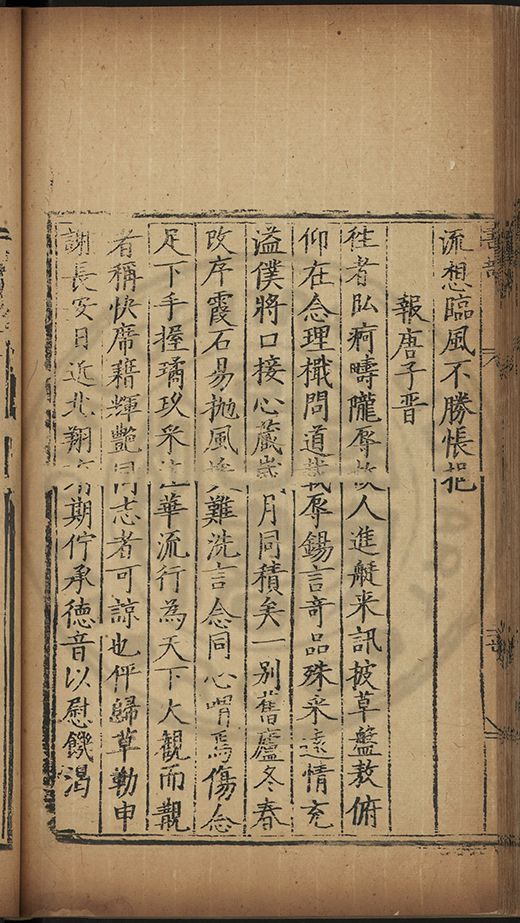 流想臨風不勝悵挹
報唐子晋
往者臥痾疇隴辱故人進艇来訊披草盤敖俯
仰在念理檝問道載辱錫言竒品殊采遠情充
溢僕將口接心藏歲月同積矣一别舊廬冬春
改序霞石易抛風埃難洗言念同心喟焉傷念
足下手握璚玖采注華流行為天下大觀而覯
者稱快席藉輝艷同志者可諒也伻歸草勒申
謝長安日近北翔有期佇承德音以慰饑渴